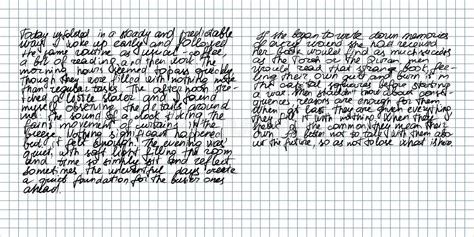 Today unfolded in a steady and predictable
way. I woke up early and followed
the same routine as usual - coffee,
a bit of reading, and then work. The
morning hours seemed to pass quickly
though they were filled with nothing more
than regular tasks. The afternoon stre-
tched a little slower and I found
myself observing the details around
me: the sound of a clock ticking, the
faint movement of curtains in the
breeze. Nothing significant happened,
but it felt enough. The evening was
quiet, with soft light filling the room
and time to simply sit and reflect
sometimes the uneventful days create
a quiet foundation for the busier ones
ahead.
If she began to write down memories
of every wound she had received
her book would find as much
as the Torah or the Quran. men
would read that strange book, fee-
ling their own guilt and burn it in
the before starting
a war men couldn't care about consi-
quences, reasons are enough for them.
When at last they are given everything
they fill it with nothing. When they
speak of the common they mean their
own. I'd rather not so talk with them abo-
ut the future, so as not to lose what is here.